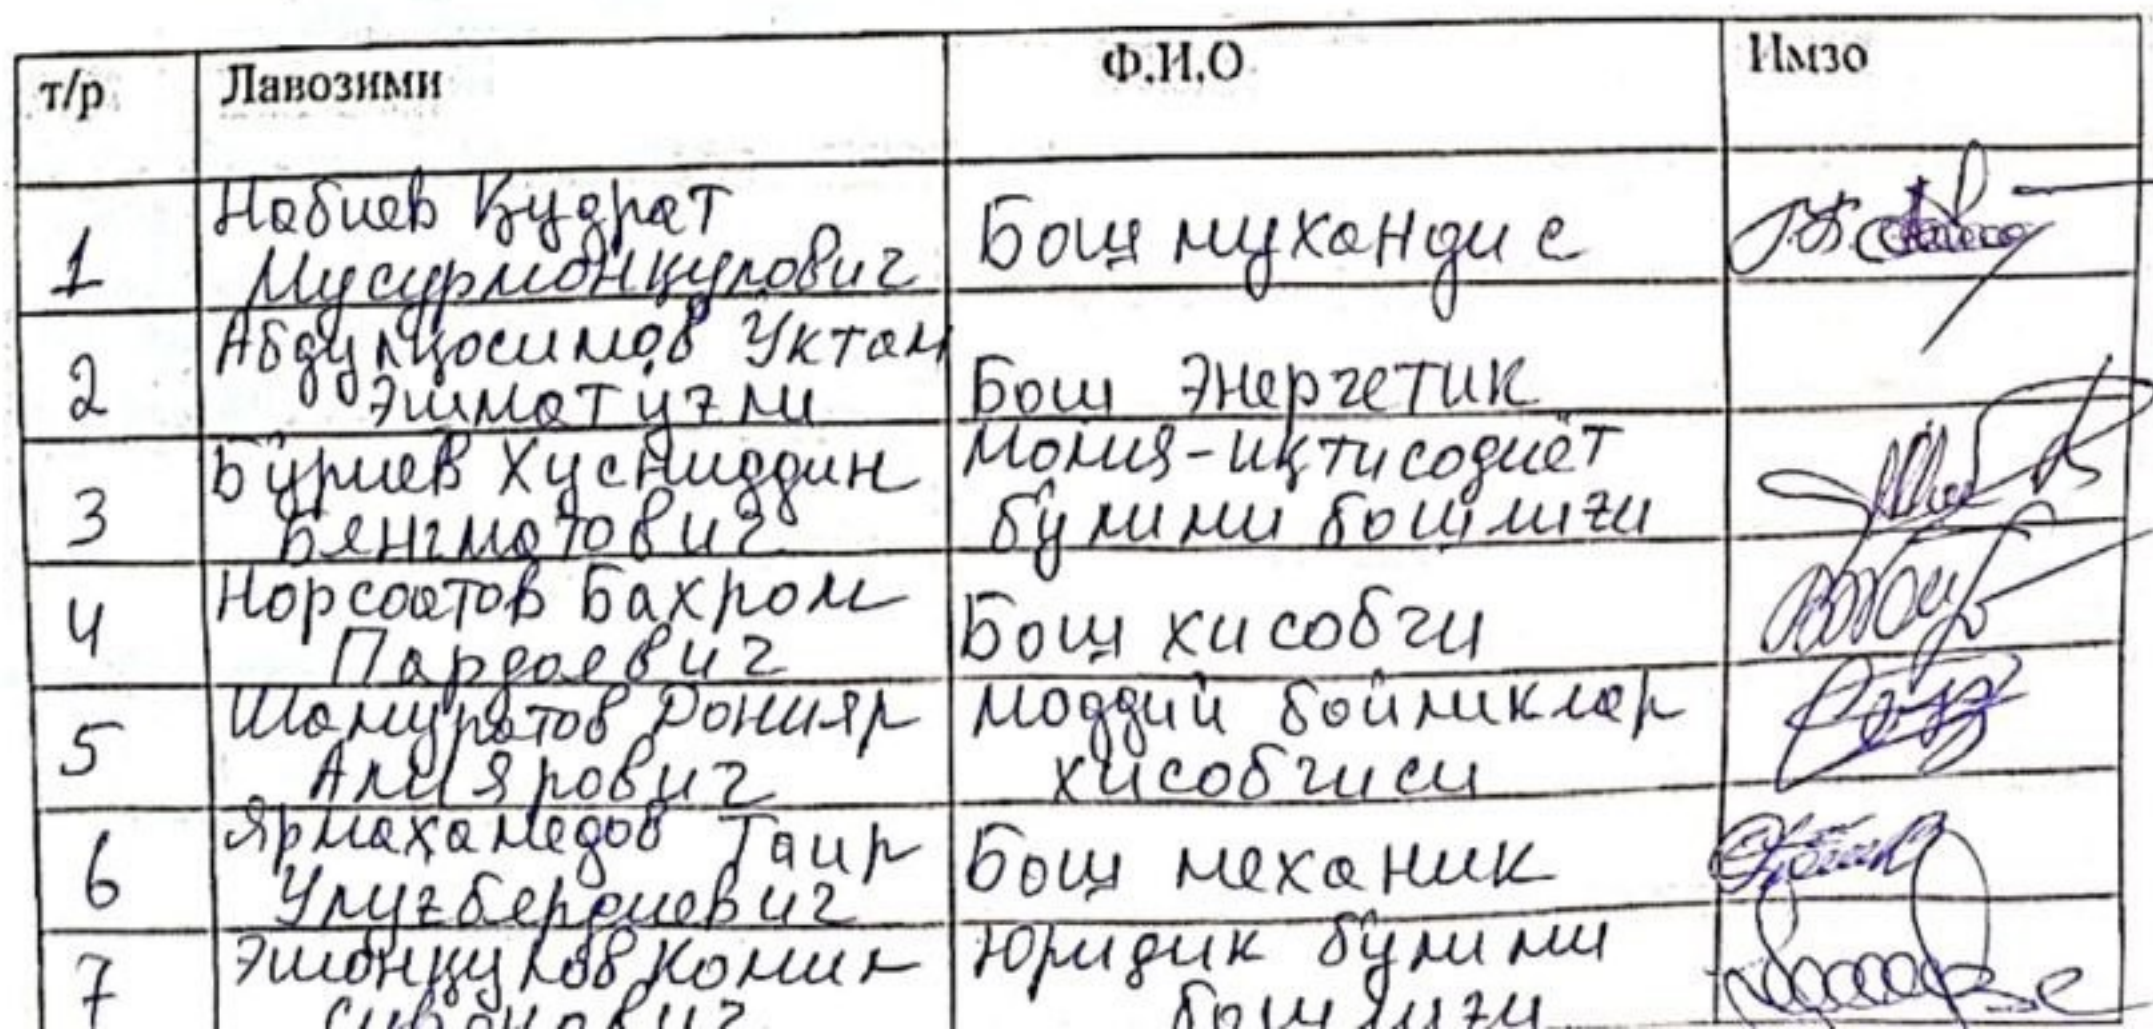 т/р Лавозими Ф.И.О Имзо
1 Набиев Қудрат
Мусурмонқулович Бош мухандис
2 Абдулқосимов Ўктам
Эшмат ўғли Бош энергетик
3 Бўриев Хусниддин Молия-иқтисодиёт
Бянгматович бўлими бошлиғи
4 Норсоатов Бахром
Пардаевич Бош хисобчи
5 Шамуратов Донияр Моддий бойликлар
Алиярович хисобчиси
6 Ярмахамедов Таир
Улуғбердиевич Бош механик
7 Эшонқулов Комил Юридик бўлими
бошлиғи